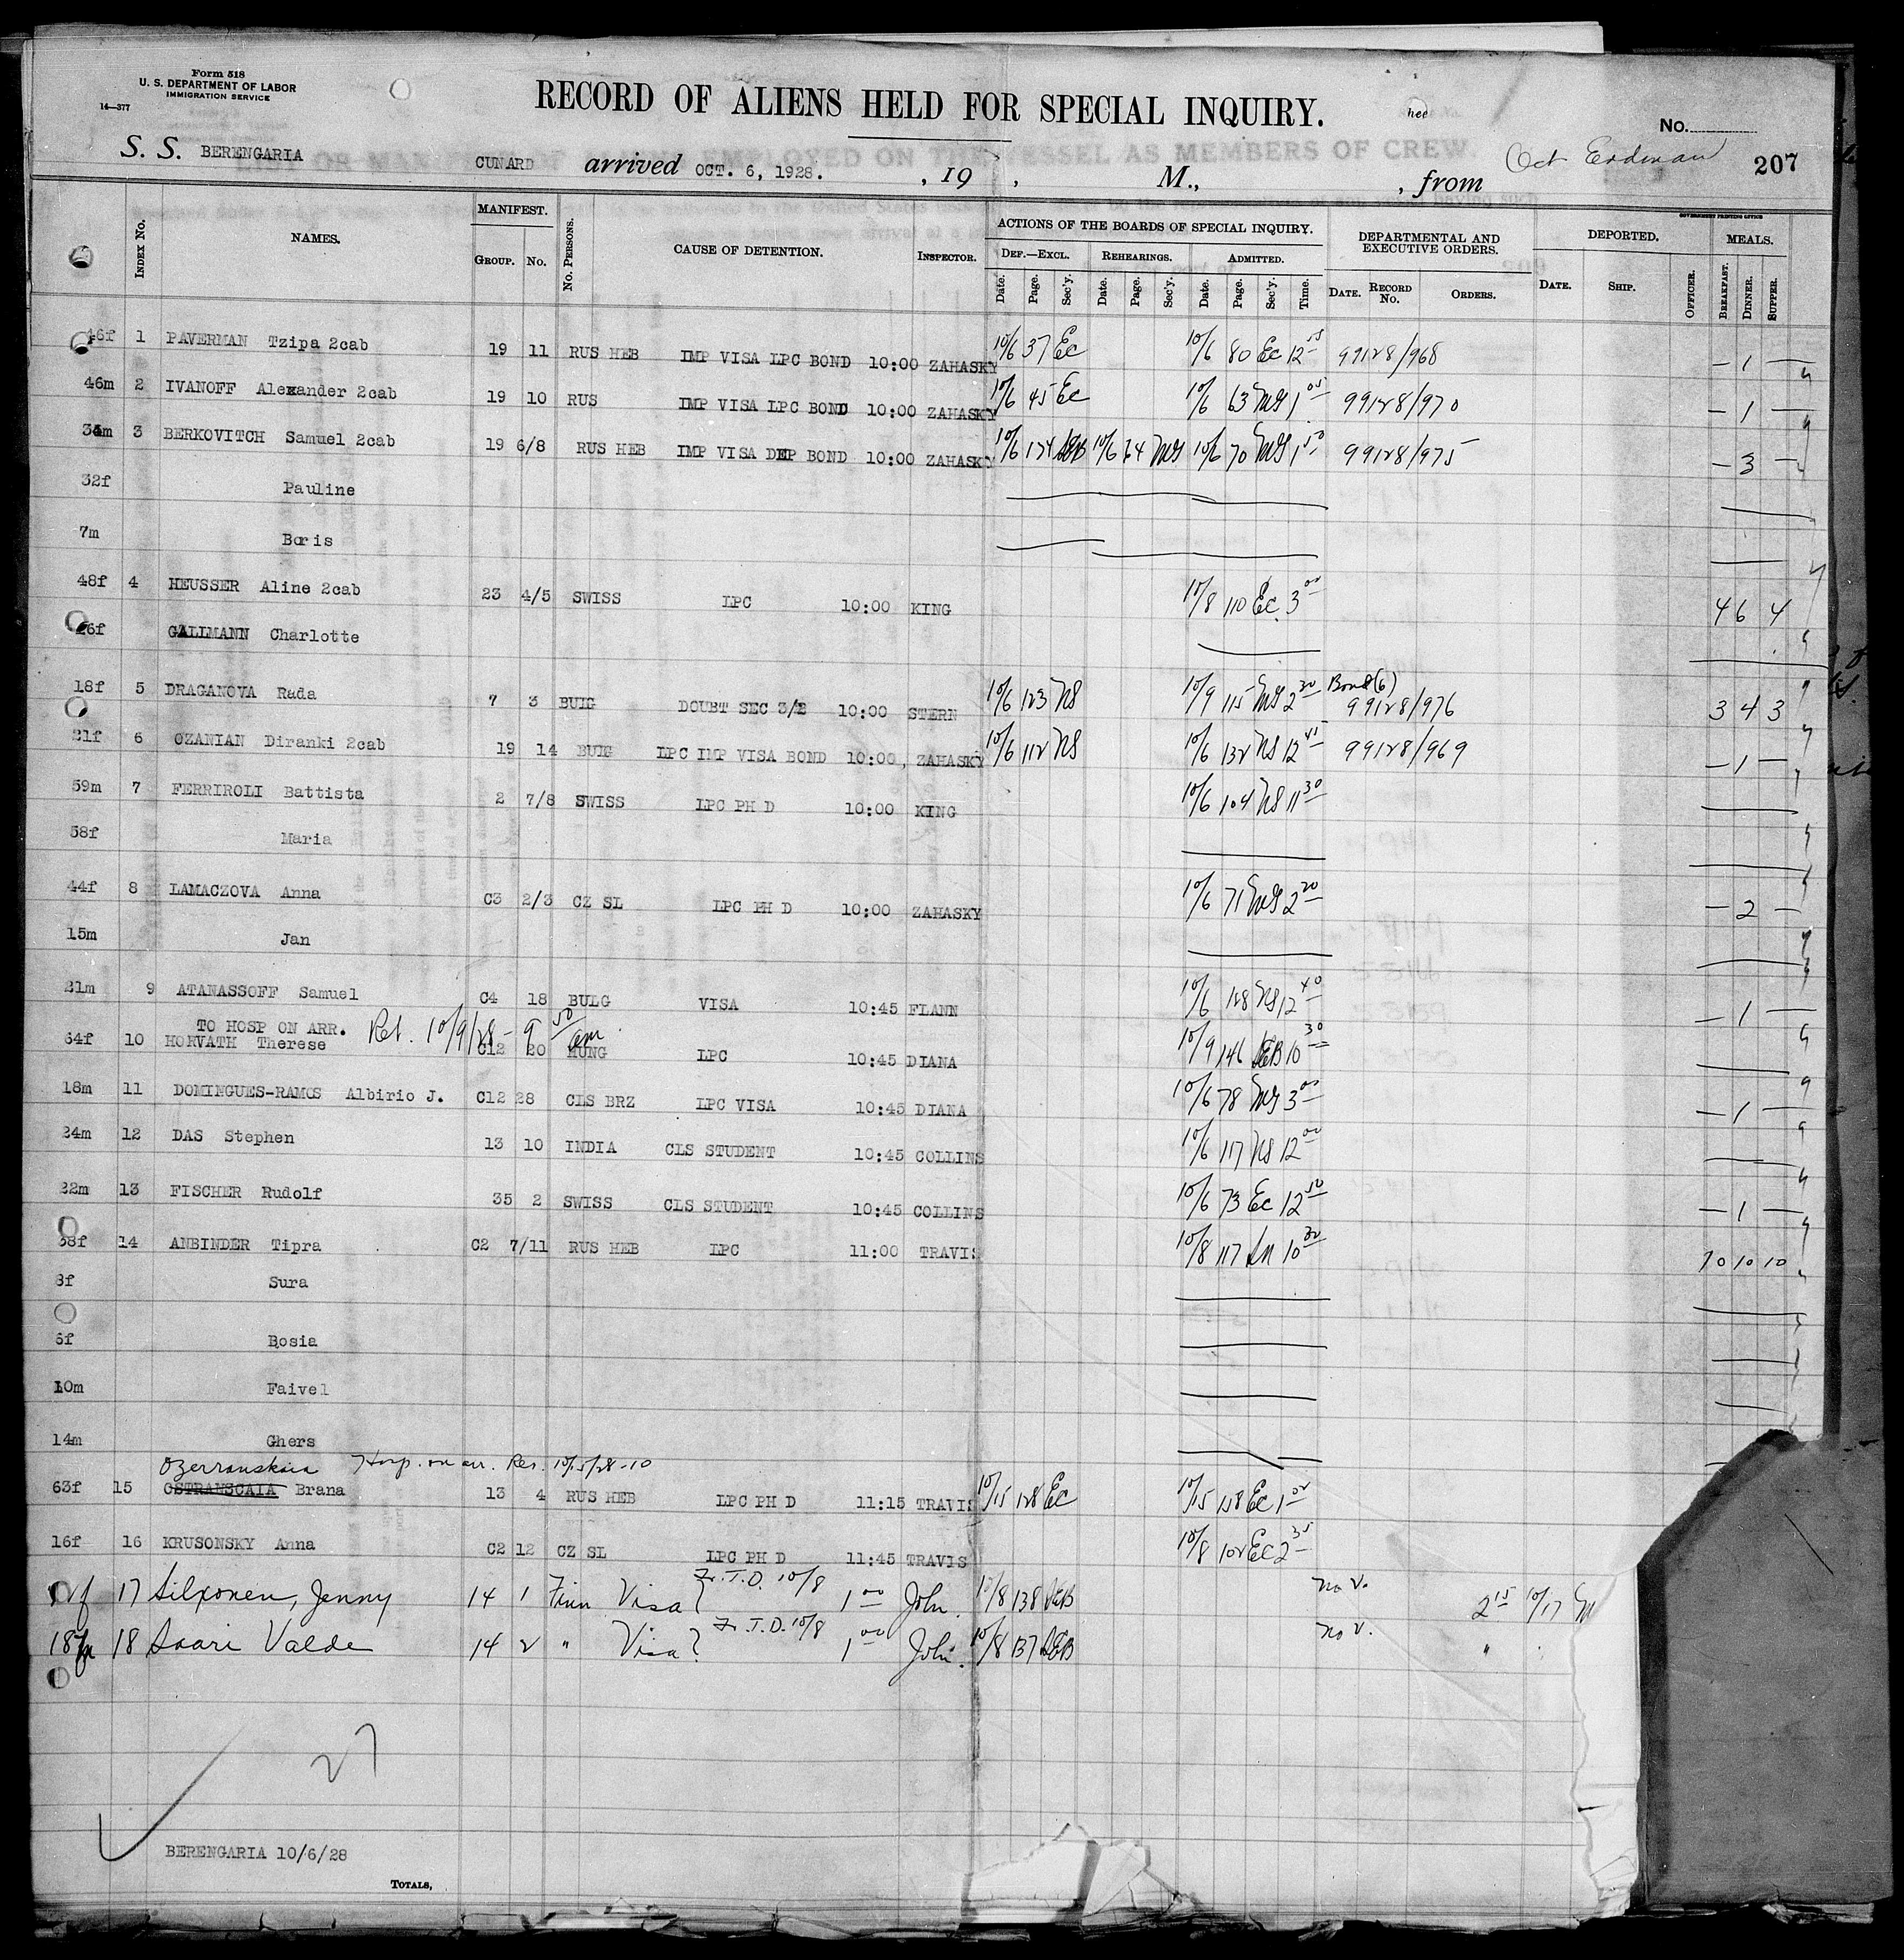 Form 518
U. S. DEPARTMENT OF LABOR
IMMIGRATION SERVICE
14—377
RECORD OF ALIENS HELD FOR SPECIAL INQUIRY.
No.
S. S. BERENGARIA CUNARD arrived OCT. 6, 1928. , 19 , M., , from Oct Erdman 207
GOVERNMENT PRINTING OFFICE
INDEX NO. NAMES. MANIFEST. GROUP. NO. NO. PERSONS. CAUSE OF DETENTION. INSPECTOR. ACTIONS OF THE BOARDS OF SPECIAL INQUIRY. DEPARTMENTAL AND EXECUTIVE ORDERS. DEPORTED. MEALS.
DEF.—EXCL. REHEARINGS. ADMITTED.
Date. Page. Sec'y. Date. Page. Sec'y. Date. Page. Sec'y. Time. DATE. RECORD NO. ORDERS. DATE. SHIP. OFFICER. BREAKFAST. DINNER. SUPPER.
46f 1 PAVERMAN Tzipa 2cab 19 11 RUS HEB IMP VISA LPC BOND 10:00 ZAHASKY 10/6 37 Ec 10/6 80 Ec 12 55 99128/968 — 1 —
46m 2 IVANOFF Alexander 2cab 19 10 RUS IMP VISA LPC BOND 10:00 ZAHASKY 10/6 45 Ec 10/6 63 MG 1 05 99128/970 — 1 —
34m 3 BERKOVITCH Samuel 2cab 19 6/8 RUS HEB IMP VISA DEP BOND 10:00 ZAHASKY 10/6 174 DEB 10/6 64 MG 10/6 70 MG 1 50 99128/975 — 3 —
32f Pauline
7m Boris
48f 4 HEUSSER Aline 2cab 23 4/5 SWISS LPC 10:00 KING 10/8 110 Ec 3 00 4 6 4
26f GALLMANN Charlotte
18f 5 DRAGANOVA Rada 7 3 BUlG DOUBT SEC 3/2 10:00 STERN 10/6 123 NS 10/9 115 MG 2 30 Bond (6) 99128/976 3 4 3
21f 6 OZANIAN Diranki 2cab 19 14 BUlG LPC IMP VISA BOND 10:00, ZAHASKY 10/6 112 NS 10/6 132 NS 12 45 99128/969 — 1 —
59m 7 FERRIROLI Battista 2 7/8 SWISS LPC PH D 10:00 KING 10/6 104 NS 11 30
58f Maria
44f 8 LAMACZOVA Anna C3 2/3 CZ SL LPC PH D 10:00 ZAHASKY 10/6 71 MG 2 20 — 2 —
15m Jan
21m 9 ATANASSOFF Samuel C4 18 BULG VISA 10:45 FLANN 10/6 128 NS 12 40 — 1 —
TO HOSP ON ARR. Ret. 10/9/28 - 9 50 am.
64f 10 HORVATH Therese C12 20 HUNG LPC 10:45 DIANA 10/9 146 DEB 10 30
18m 11 DOMINGUES-RAMOS Albirio J. C12 28 CLS BRZ LPC VISA 10:45 DIANA 10/6 78 MG 3 00 — 1 —
24m 12 DAS Stephen 13 10 INDIA CLS STUDENT 10:45 COLLINS 10/6 117 NS 12 00
22m 13 FISCHER Rudolf 35 2 SWISS CLS STUDENT 10:45 COLLINS 10/6 73 Ec 12 50 — 1 —
38f 14 ANBINDER Tipra C2 7/11 RUS HEB LPC 11:00 TRAVIS 10/8 117 10 30 10 10 10
8f Sura
6f Bosia
10m Faivel
14m Ghers
Ozerranskaia Hosp. on arr. Res. 10/15/28-10
63f 15 OSTRANSCAIA Brana 13 4 RUS HEB LPC PH D 11:15 TRAVIS 10/15 128 Ec 10/15 128 Ec 1 00
16f 16 KRUSONSKY Anna C2 12 CZ SL LPC PH D 11:45 TRAVIS 10/8 102 Ec 2 35
17 Silponen, Jenny 14 1 Finn Visa? Fr. T.D. 10/8 1 00 John. 10/8 138 DEB no v. 2 15 10/17
18 Saari Valde 14 2 " Visa? Fr. T.D. 10/8 1 00 John. 10/8 137 DEB no v. "
27
BERENGARIA 10/6/28
TOTALS,